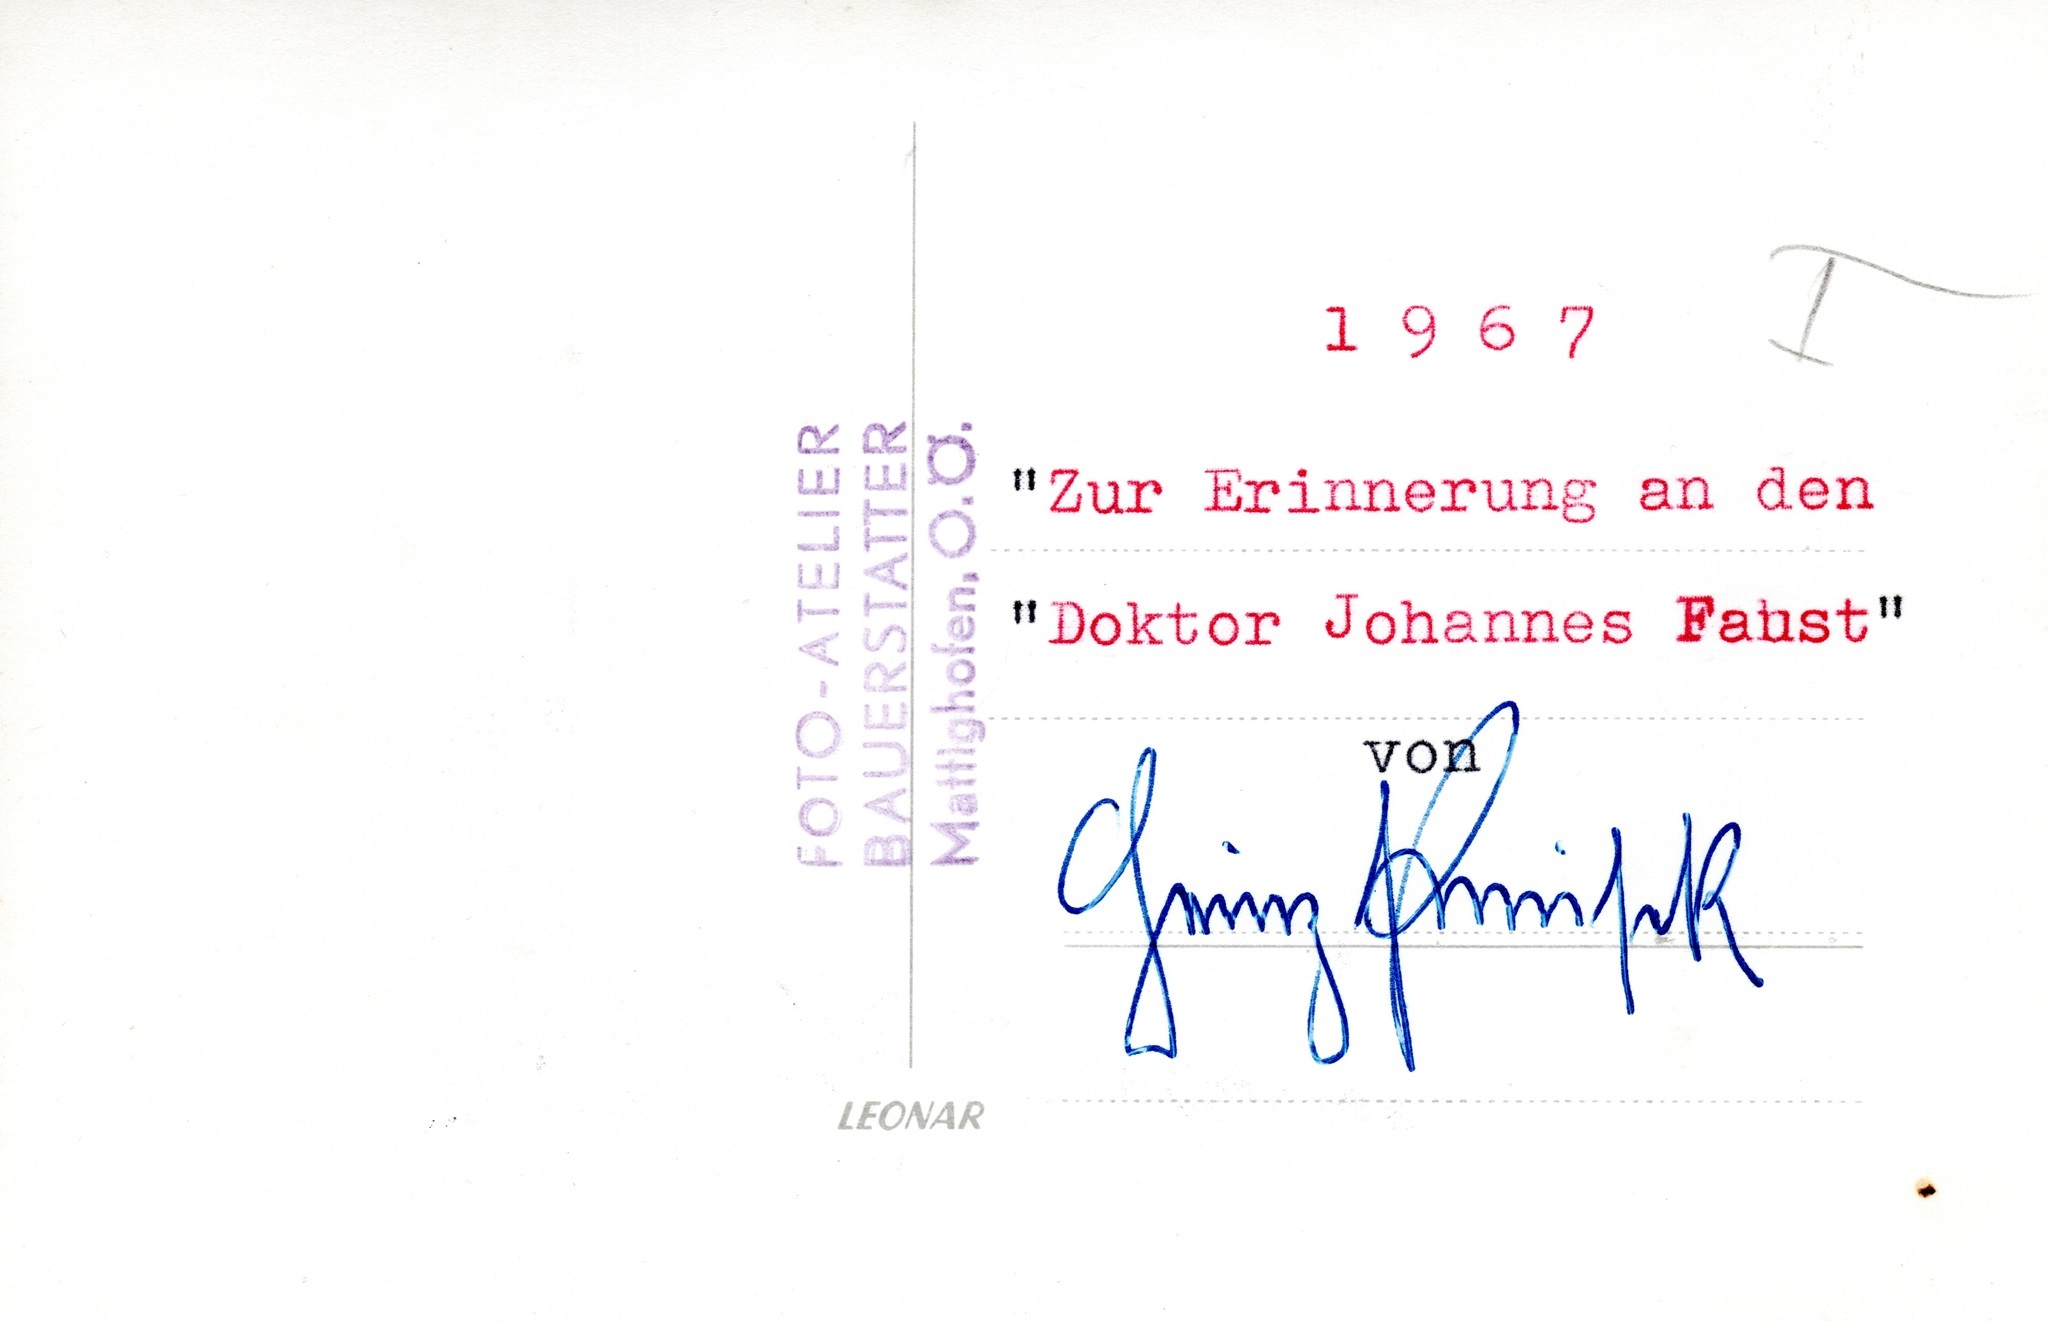 1 9 6 7
I
FOTO-ATELIER
BAUERSTATTER
Mattighofen, O.Ö.
"Zur Erinnerung an den
"Doktor Johannes Faust"
von
LEONAR